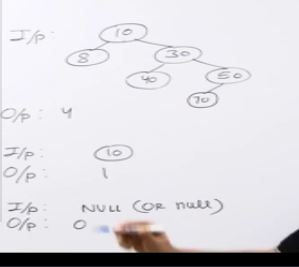 I/p: 10
8 30
40 50
70
O/p: 4
I/p: 10
O/p: 1
I/p: NULL (OR null)
O/p: 0